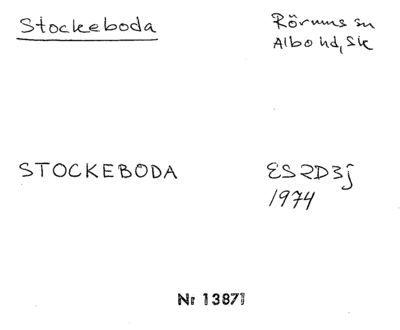 Stockeboda
Rörums sn
Albo hd, Sk
STOCKEBODA
ES 2D3j
1974
Nr 13871